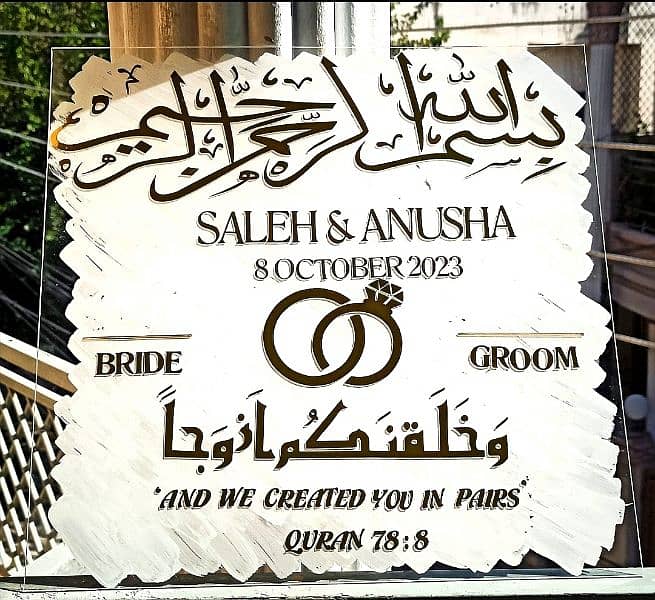 بسم الله الرحمن الرحيم
SALEH & ANUSHA
8 OCTOBER 2023
BRIDE GROOM
وَخَلَقنَكُم اَزوَجاً
"AND WE CREATED YOU IN PAIRS"
QURAN 78:8